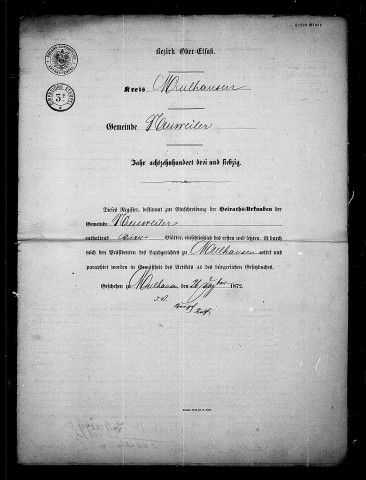 Erstes Blatt
Bezirk Ober-Elsaß.
Kreis Mülhausen
Gemeinde Neuweiler
Jahr achtzehnhundert drei und siebzig.
Dieses Register, bestimmt zur Einschreibung der Heiraths-Urkunden der
Gemeinde Neuweiler
enthaltend Blätter, einschließlich des ersten und letzten, ist durch
mich den Präsidenten des Landgerichtes zu Mülhausen cotirt und
paraphirt worden in Gemäßheit des Artikels 41 des bürgerlichen Gesetzbuches.
Geschehen zu Mülhausen, den 26 1872.